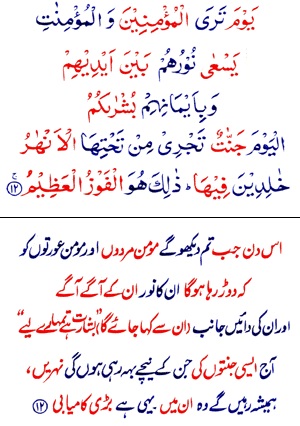 يَوْمَ تَرَى الْمُؤْمِنِيْنَ وَ الْمُؤْمِنٰتِ
يَسْعٰى نُوْرُهُمْ بَيْنَ اَيْدِيْهِمْ
وَبِاَيْمَانِهِمْ بُشْرٰىكُمُ
الْيَوْمَ جَنّٰتٌ تَجْرِيْ مِنْ تَحْتِهَا الْاَنْهٰرُ
خٰلِدِيْنَ فِيْهَا ؕ ذٰلِكَ هُوَ الْفَوْزُ الْعَظِيْمُ ۚ ﴿۱۲﴾
اس دن جب تم دیکھو گے مومن مردوں اور مومن عورتوں کو
کہ دوڑ رہا ہو گا ان کا نور ان کے آگے آگے
اور ان کی دائیں جانب (ان سے کہا جائے گا) ”بشارت ہے تمہارے لیے“
آج ایسی جنتوں کی جن کے نیچے بہہ رہی ہوں گی نہریں،
ہمیشہ رہیں گے وہ ان میں یہی ہے بڑی کامیابی ﴿۱۲﴾